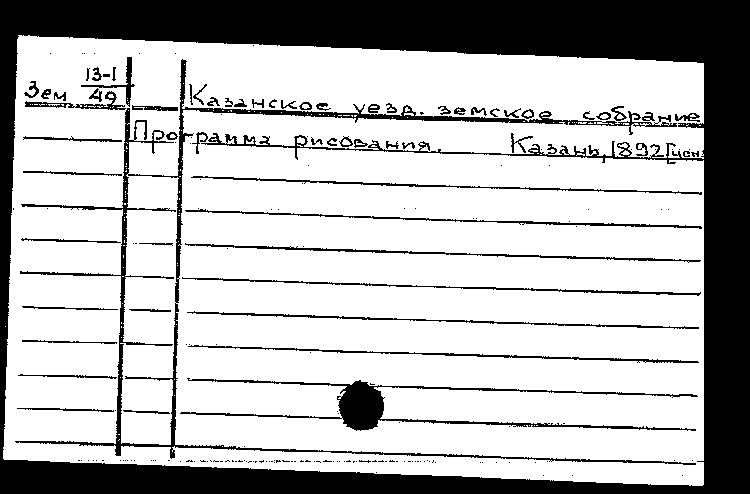 Зем 13-1/49 Казанское уезд. земское собрание
Программа рисования. Казань, 1892 [ценз